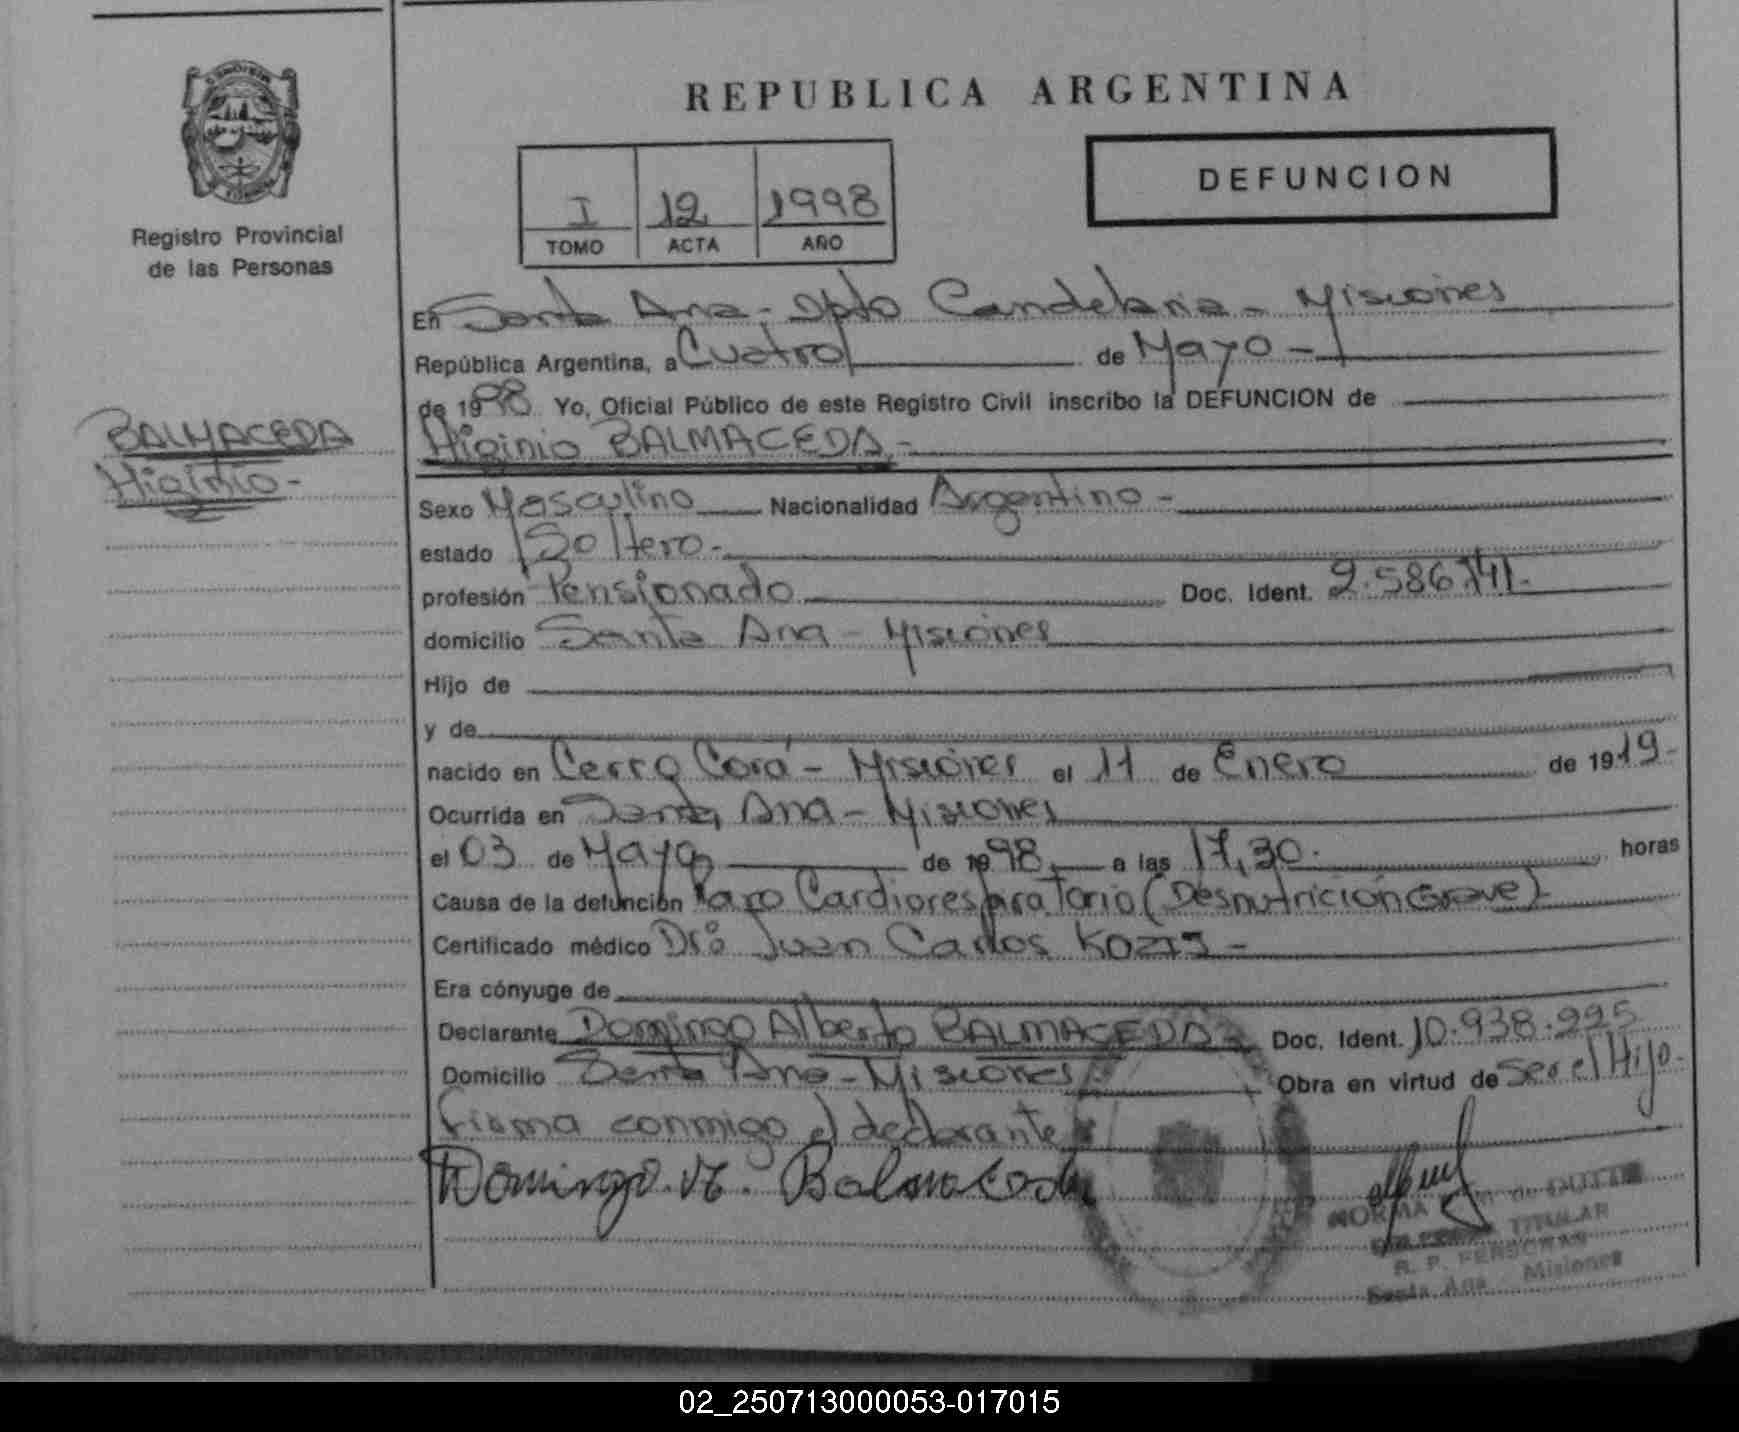 REPUBLICA ARGENTINA
Registro Provincial
de las Personas
I 12 1998
TOMO ACTA AÑO
DEFUNCION
En Santa Ana - Dpto Candelaria - Misiones
República Argentina, a Cuatro de Mayo -
de 1998 Yo, Oficial Público de este Registro Civil inscribo la DEFUNCION de
BALMACEDA
Higinio -
Higinio BALMACEDA. -
Sexo Masculino Nacionalidad Argentino -
estado Soltero -
profesión Pensionado Doc. Ident. 2.586.741.-
domicilio Santa Ana - Misiones
Hijo de
y de
nacido en Cerro Corá - Misiones el 11 de Enero de 1919-
Ocurrida en Santa Ana - Misiones
el 03 de Mayo de 1998 a las 17,30. horas
Causa de la defunción Paro Cardiorespiratorio (Desnutrición Grave)
Certificado médico Dr. Juan Carlos -
Era cónyuge de
Declarante Domingo Alberto BALMACEDA - Doc. Ident. 10.938.995
Domicilio Santa Ana - Misiones Obra en virtud de Ser el Hijo.-
firma conmigo el declarante
Domingo A. Balmaceda
NORMA de
TITULAR
R. P. PERSONAS
Santa Ana Misiones
02_250713000053-017015